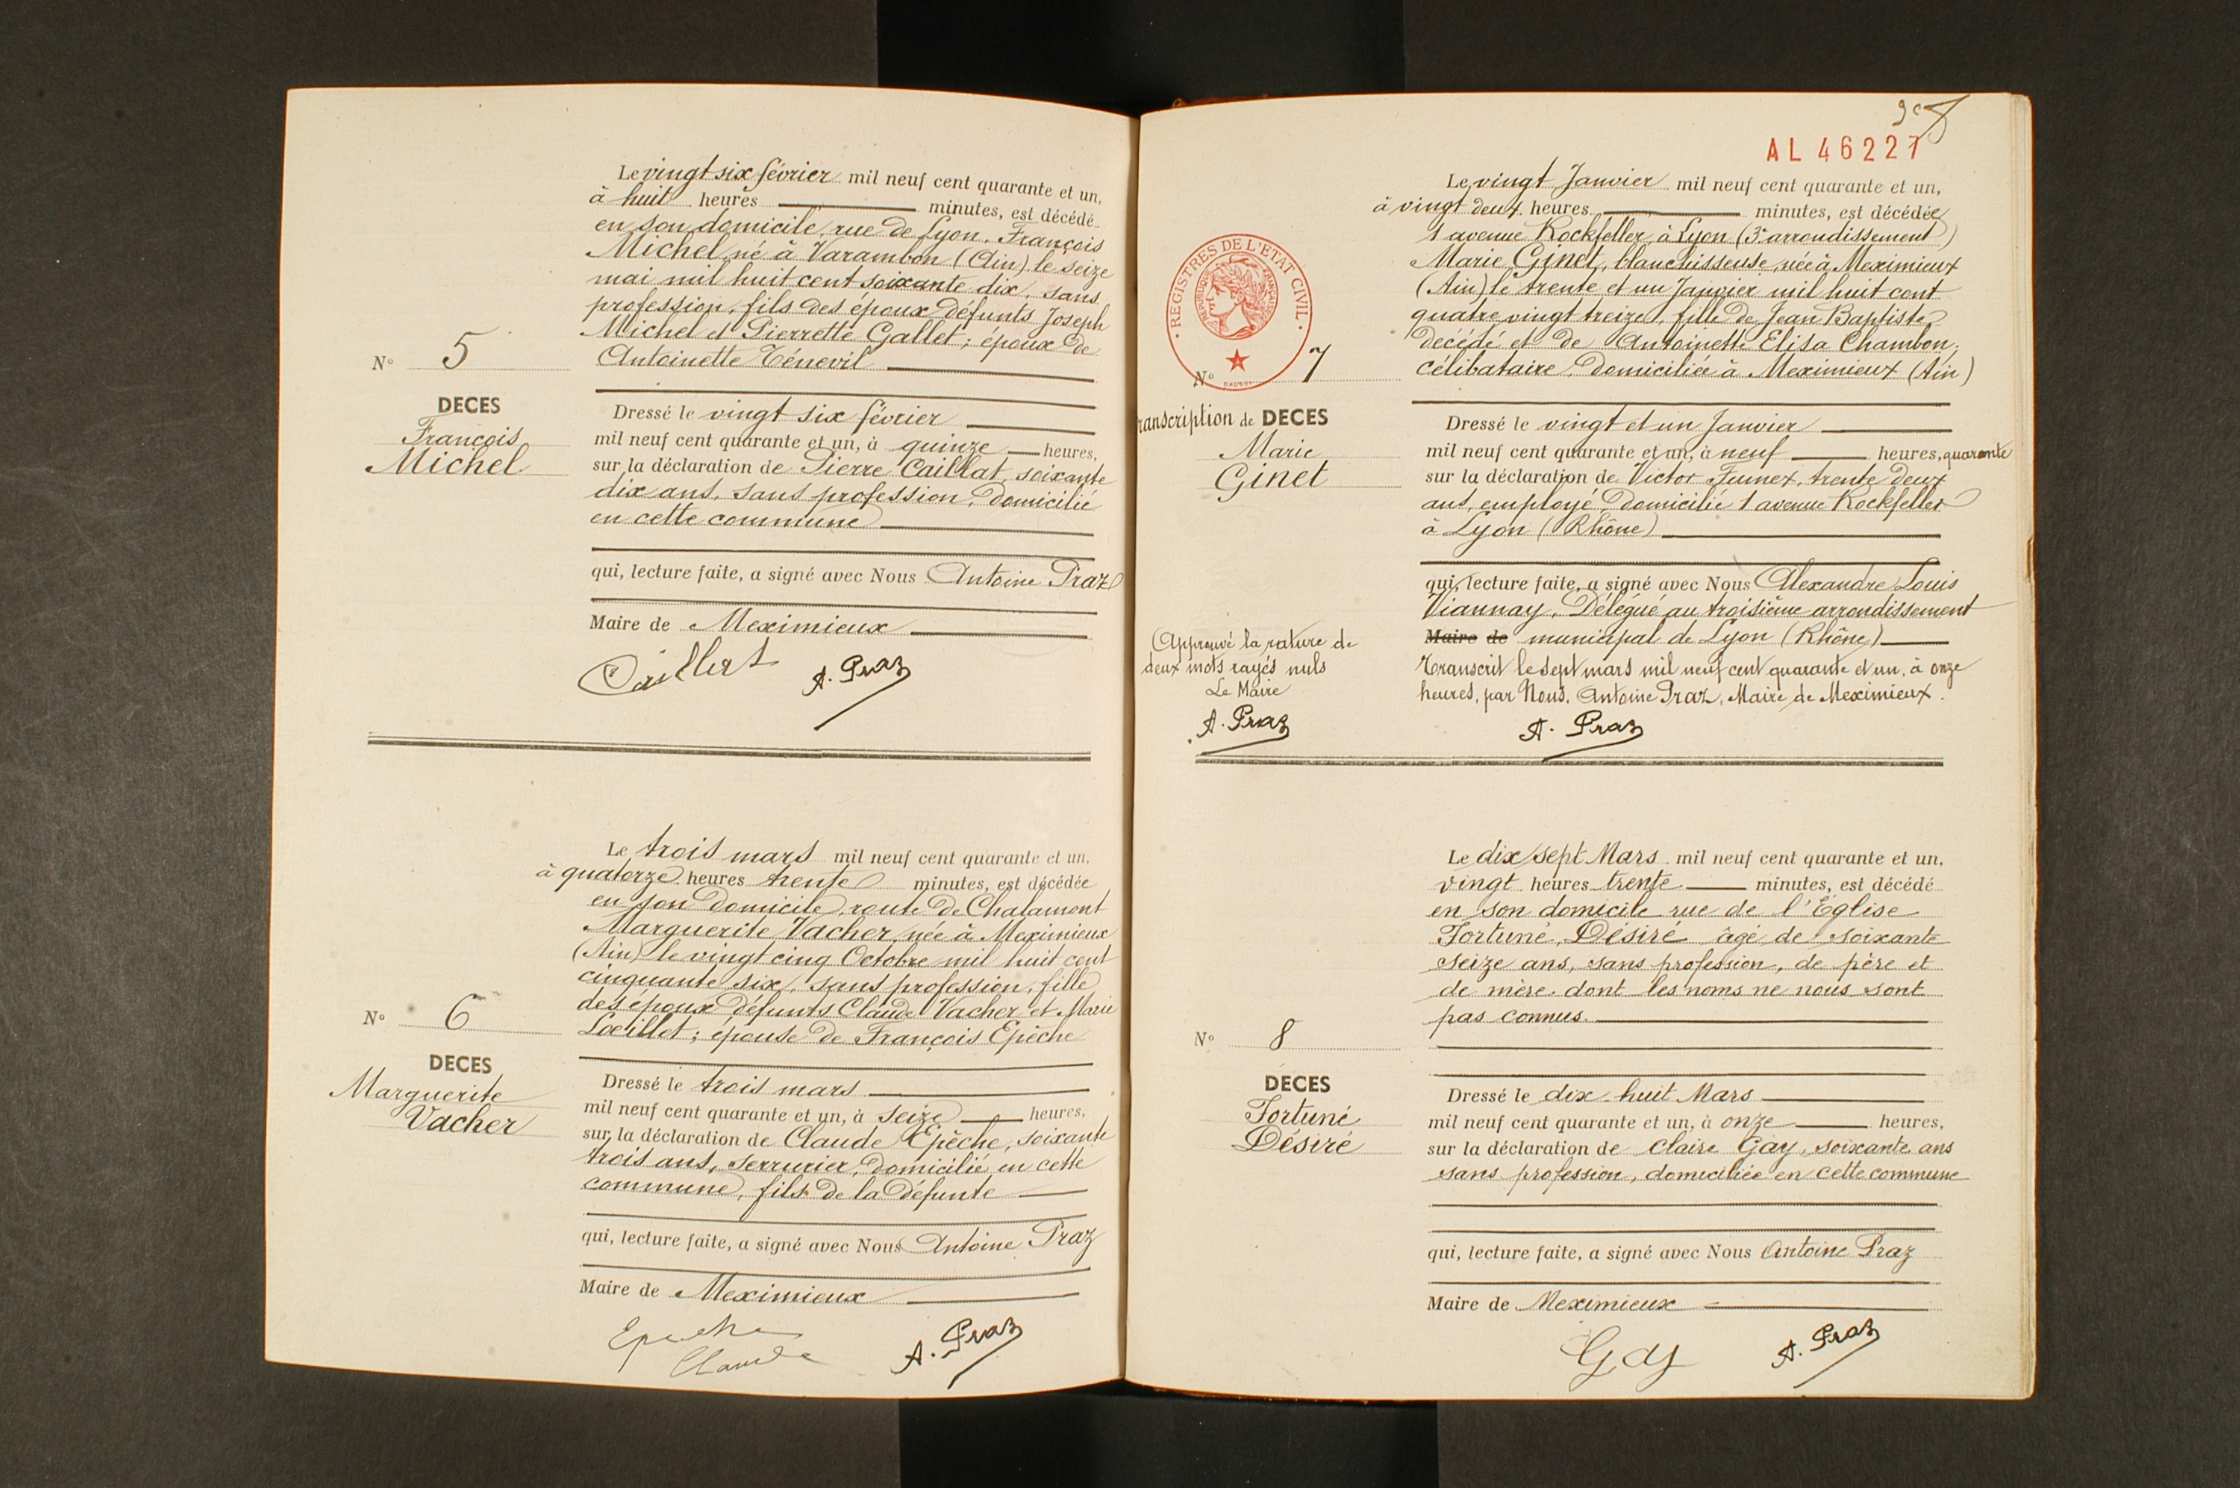 Le vingt six février mil neuf cent quarante et un,
à huit heures minutes, est décédé
en son domicile, rue de Lyon, François
Michel, né à Varambon (Ain) le seize
mai mil huit cent soixante dix, sans
profession, fils des époux défunts Joseph
Michel et Pierrette Gallet; époux de
Antoinette Ténevil
N° 5
DECES
François
Michel
Dressé le vingt six février
mil neuf cent quarante et un, à quinze heures,
sur la déclaration de Pierre Caillat, soixante
dix ans, sans profession, domicilié
en cette commune
qui, lecture faite, a signé avec Nous Antoine Praz
Maire de Meximieux
A. Praz
Le trois mars mil neuf cent quarante et un,
à quatorze heures trente minutes, est décédée
en son domicile, route de Chalamont
Marguerite Vacher, née à Meximieux
(Ain) le vingt cinq Octobre mil huit cent
cinquante six, sans profession, fille
des époux défunts Claude Vacher et Marie
Lœillet; épouse de François Epèche
N° 6
DECES
Marguerite
Vacher
Dressé le trois mars
mil neuf cent quarante et un, à seize heures,
sur la déclaration de Claude Epèche, soixante
trois ans, serrurier, domicilié en cette
commune, fils de la défunte
qui, lecture faite, a signé avec Nous Antoine Praz
Maire de Meximieux
Epeche
Claude
A. Praz
AL 46227
Le vingt Janvier mil neuf cent quarante et un,
à vingt deux heures minutes, est décédée
1 avenue Rockfeller à Lyon (3e arrondissement)
Marie Ginet, blanchisseuse, née à Meximieux
(Ain) le trente et un Janvier mil huit cent
quatre vingt treize, fille de Jean Baptiste
décédé et de Antoinette Elisa Chambon;
célibataire. Domiciliée à Meximieux (Ain)
REGISTRES DE L'ETAT CIVIL
N° 7
Transcription de DECES
Marie
Ginet
Dressé le vingt et un Janvier
mil neuf cent quarante et un, à neuf heures, quarante
sur la déclaration de Victor Fumex, trente deux
ans, employé, domicilié 1 avenue Rockfeller
à Lyon (Rhône)
qui, lecture faite, a signé avec Nous Alexandre Louis
Viannay, Délégué au troisième arrondissement
Maire de municipal de Lyon (Rhône)
Transcrit le sept mars mil neuf cent quarante et un, à onze
heures, par Nous, Antoine Praz, Maire de Meximieux.
A. Praz
Approuvé la rature de
deux mots rayés nuls
Le Maire
A. Praz
Le dix sept Mars mil neuf cent quarante et un,
vingt heures trente minutes, est décédé
en son domicile rue de l'Eglise
Fortuné, Désiré âgé de soixante
seize ans, sans profession, de père et
de mère dont les noms ne nous sont
pas connus.
N° 8
DECES
Fortuné
Désiré
Dressé le dix-huit Mars
mil neuf cent quarante et un, à onze heures,
sur la déclaration de Claire Gay, soixante ans
sans profession, domiciliée en cette commune
qui, lecture faite, a signé avec Nous Antoine Praz
Maire de Meximieux
Gay
A. Praz